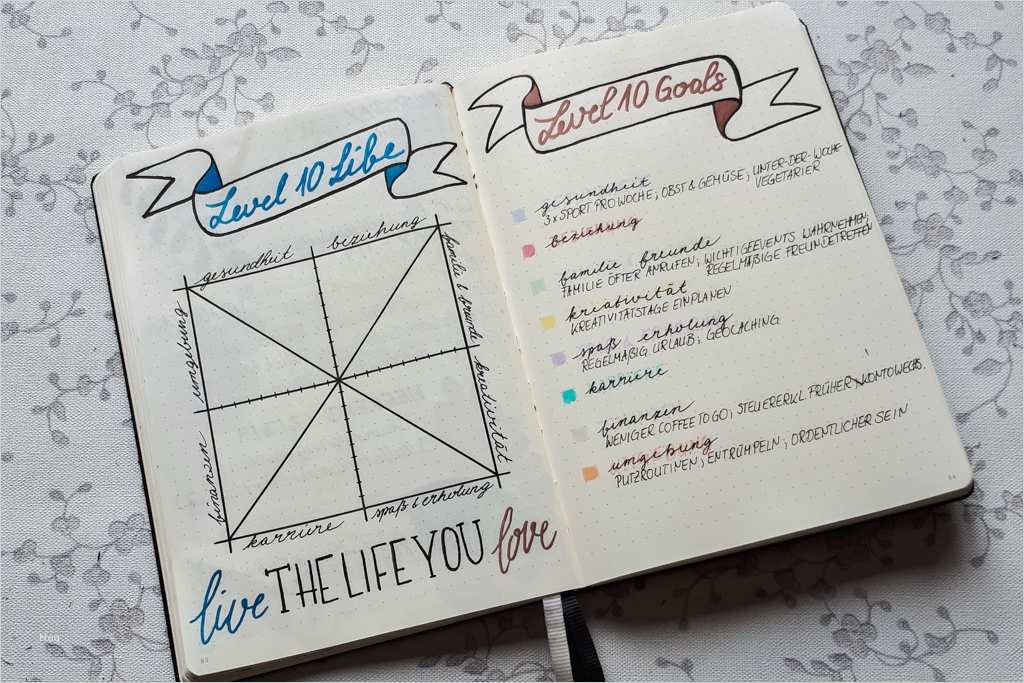 Level 10 Life
gesundheit
beziehung
familie & freunde
kreativität
spaß & erholung
karriere
finanzen
umgebung
live THE LIFE YOU love
83
Level 10 Goals
gesundheit
3 x SPORT PRO WOCHE, OBST & GEMÜSE, UNTER-DER-WOCHE
VEGETARIER
beziehung
familie freunde
FAMILIE ÖFTER ANRUFEN, WICHTIGE EVENTS WAHRNEHMEN,
REGELMÄßIGE FREUNDETREFFEN
kreativität
KREATIVITÄTSTAGE EINPLANEN
spaß & erholung
REGELMAßIG URLAUB, GEOCACHING
karriere
finanzen
WENIGER COFFEE TO GO, STEUERERKL. FRÜHER, KONTOWECHS.
umgebung
PUTZROUTINEN, ENTRÜMPELN, ORDENTLICHER SEIN
84